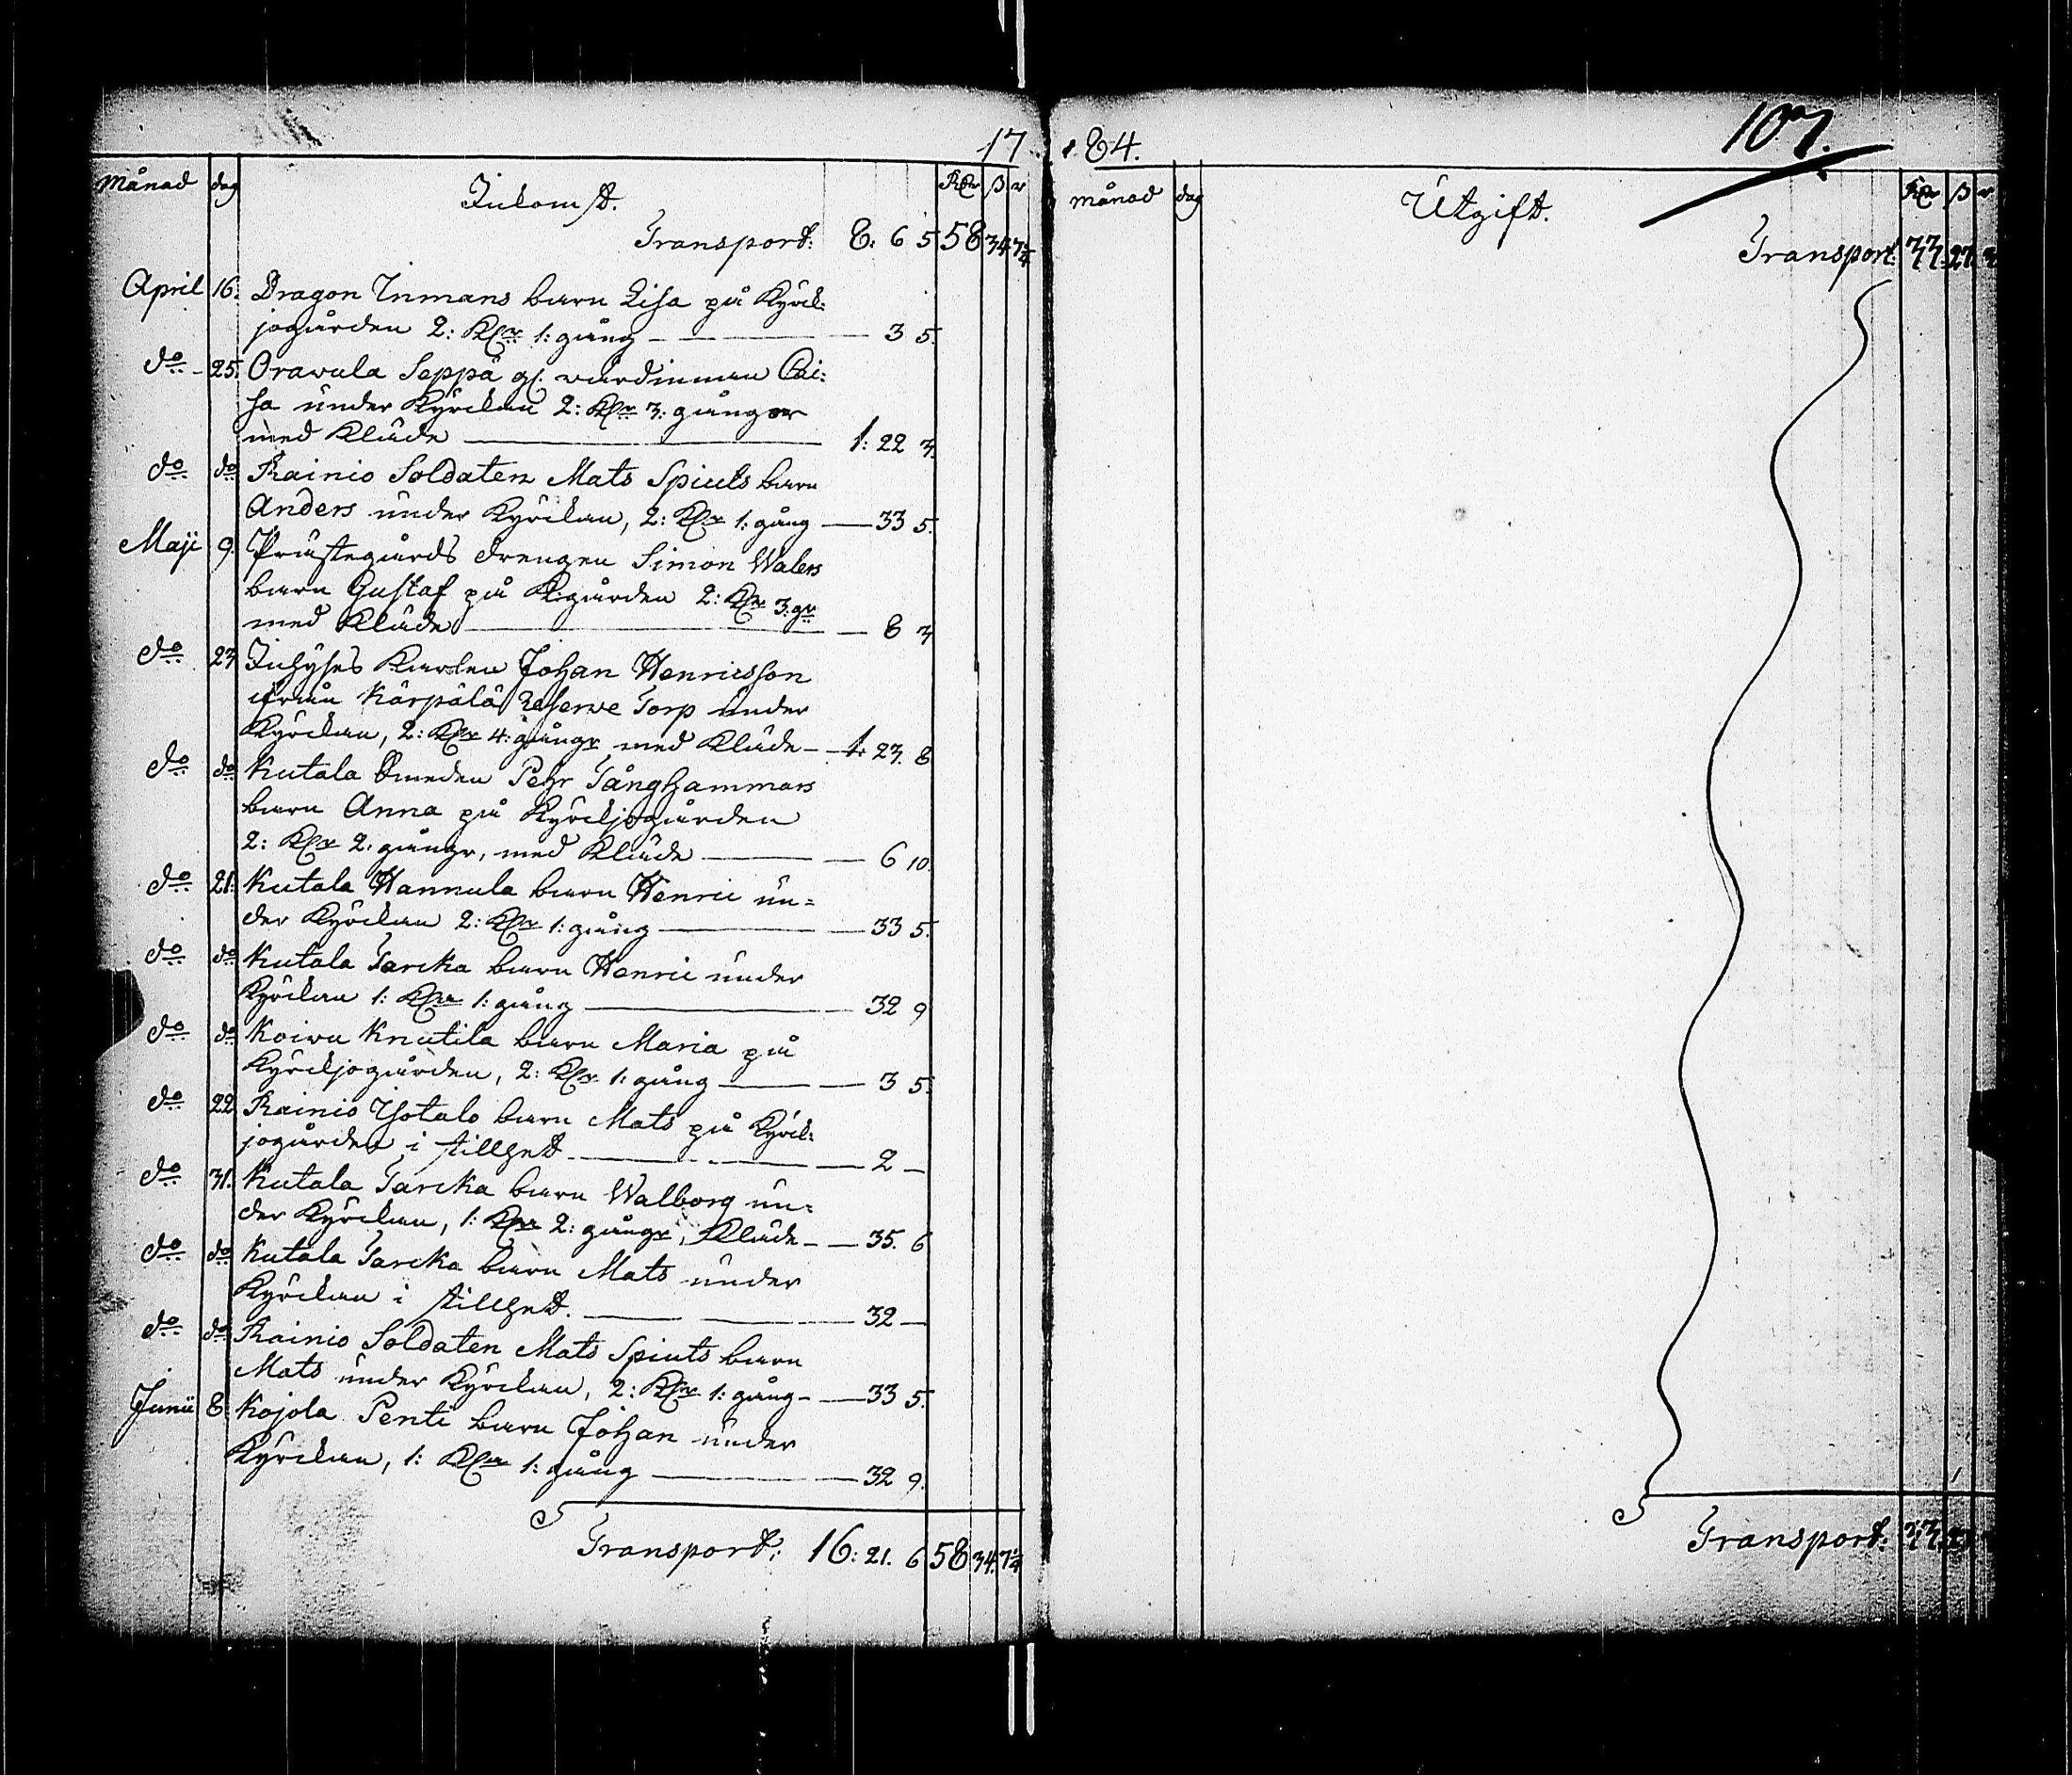 17
Månad dag Inkomst. Rdr ß r
Transport: 8: 6 5 58 34 7¼
April 16. Dragon Inmans barn Lisa på Kyrck:
jogården 2: Klr 1: gång — 3 5.
do 25. Oravula Seppä gl. värdinnan Cai:
sa under Kyrckan 2: Klr 3: gångor
med Kläde — 1: 22 3.
do do Rainio Soldaten Mats Spicks barn
Anders under Kyrckan, 2: Klr 1: gång — 33 5.
Maji 9. Prästegårds drengen Simon Walers
barn Gustaf på Kgården 2: Klr 3: gr
med Kläde — 8 3
do 23 Inhyses Karlen Johan Henricsson
ifrån Kärpälä Reserve Torp under
Kyrckan, 2: Klr 4: gångr med Kläde — 1: 23. 8
do do Kutala Smeden Pehr Tånghammars
barn Anna på Kyrckjogården
2: Klr 2: gångr, med Kläde — 6 10.
do 21. Kutala Hannula barn Henric un=
der Kyrckan 2: Klr 1: gång — 33 5.
do do Kutala Jarcka barn Henric under
Kyrckan 1: Klr 1: gång — 32 9
do do Koivu Knutila barn Maria på
Kyrckjogården, 2: Klr 1: gång — 3 5.
do 22 Rainio Ysotalo barn Mats på Kyrck:
jogården i stillhet — 2 —
do 31. Kutala Jarcka barn Walborg un=
der Kyrckan, 1: Klr 2: gångr, Kläde — 35. 6
do do Kutala Jarcka barn Mats under
Kyrckan i stillhet. — 32 —
do do Rainio Soldaten Mats Spints barn
Mats under Kyrckan, 2: Klr 1: gång — 33 5.
Junii 8. Kojola Penti barn Johan under
Kyrckan, 1: Klr 1: gång — 32 9.
Transport: 16: 21. 6 58 34. 7¼
84. 107.
månad dag Utgift. Rdr ß r
Transport: 33. 27. 3
Transport: 33. 27